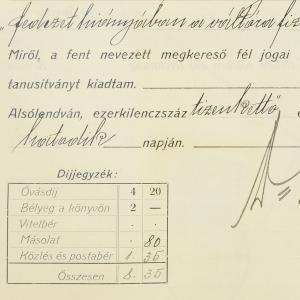 "fedezet hiányában a váltóra fiz
Miről, a fent nevezett megkereső fél jogai
tanusitványt kiadtam.
Alsólendván, ezerkilenczszáz tizenkettő é
hatodik napján.
Díjjegyzék:
Óvásdíj 4 20
Bélyeg a könyvön 2 —
Vitelbér . .
Másolat . 80
Közlés és postabér 1. 35
Összesen 8. 35